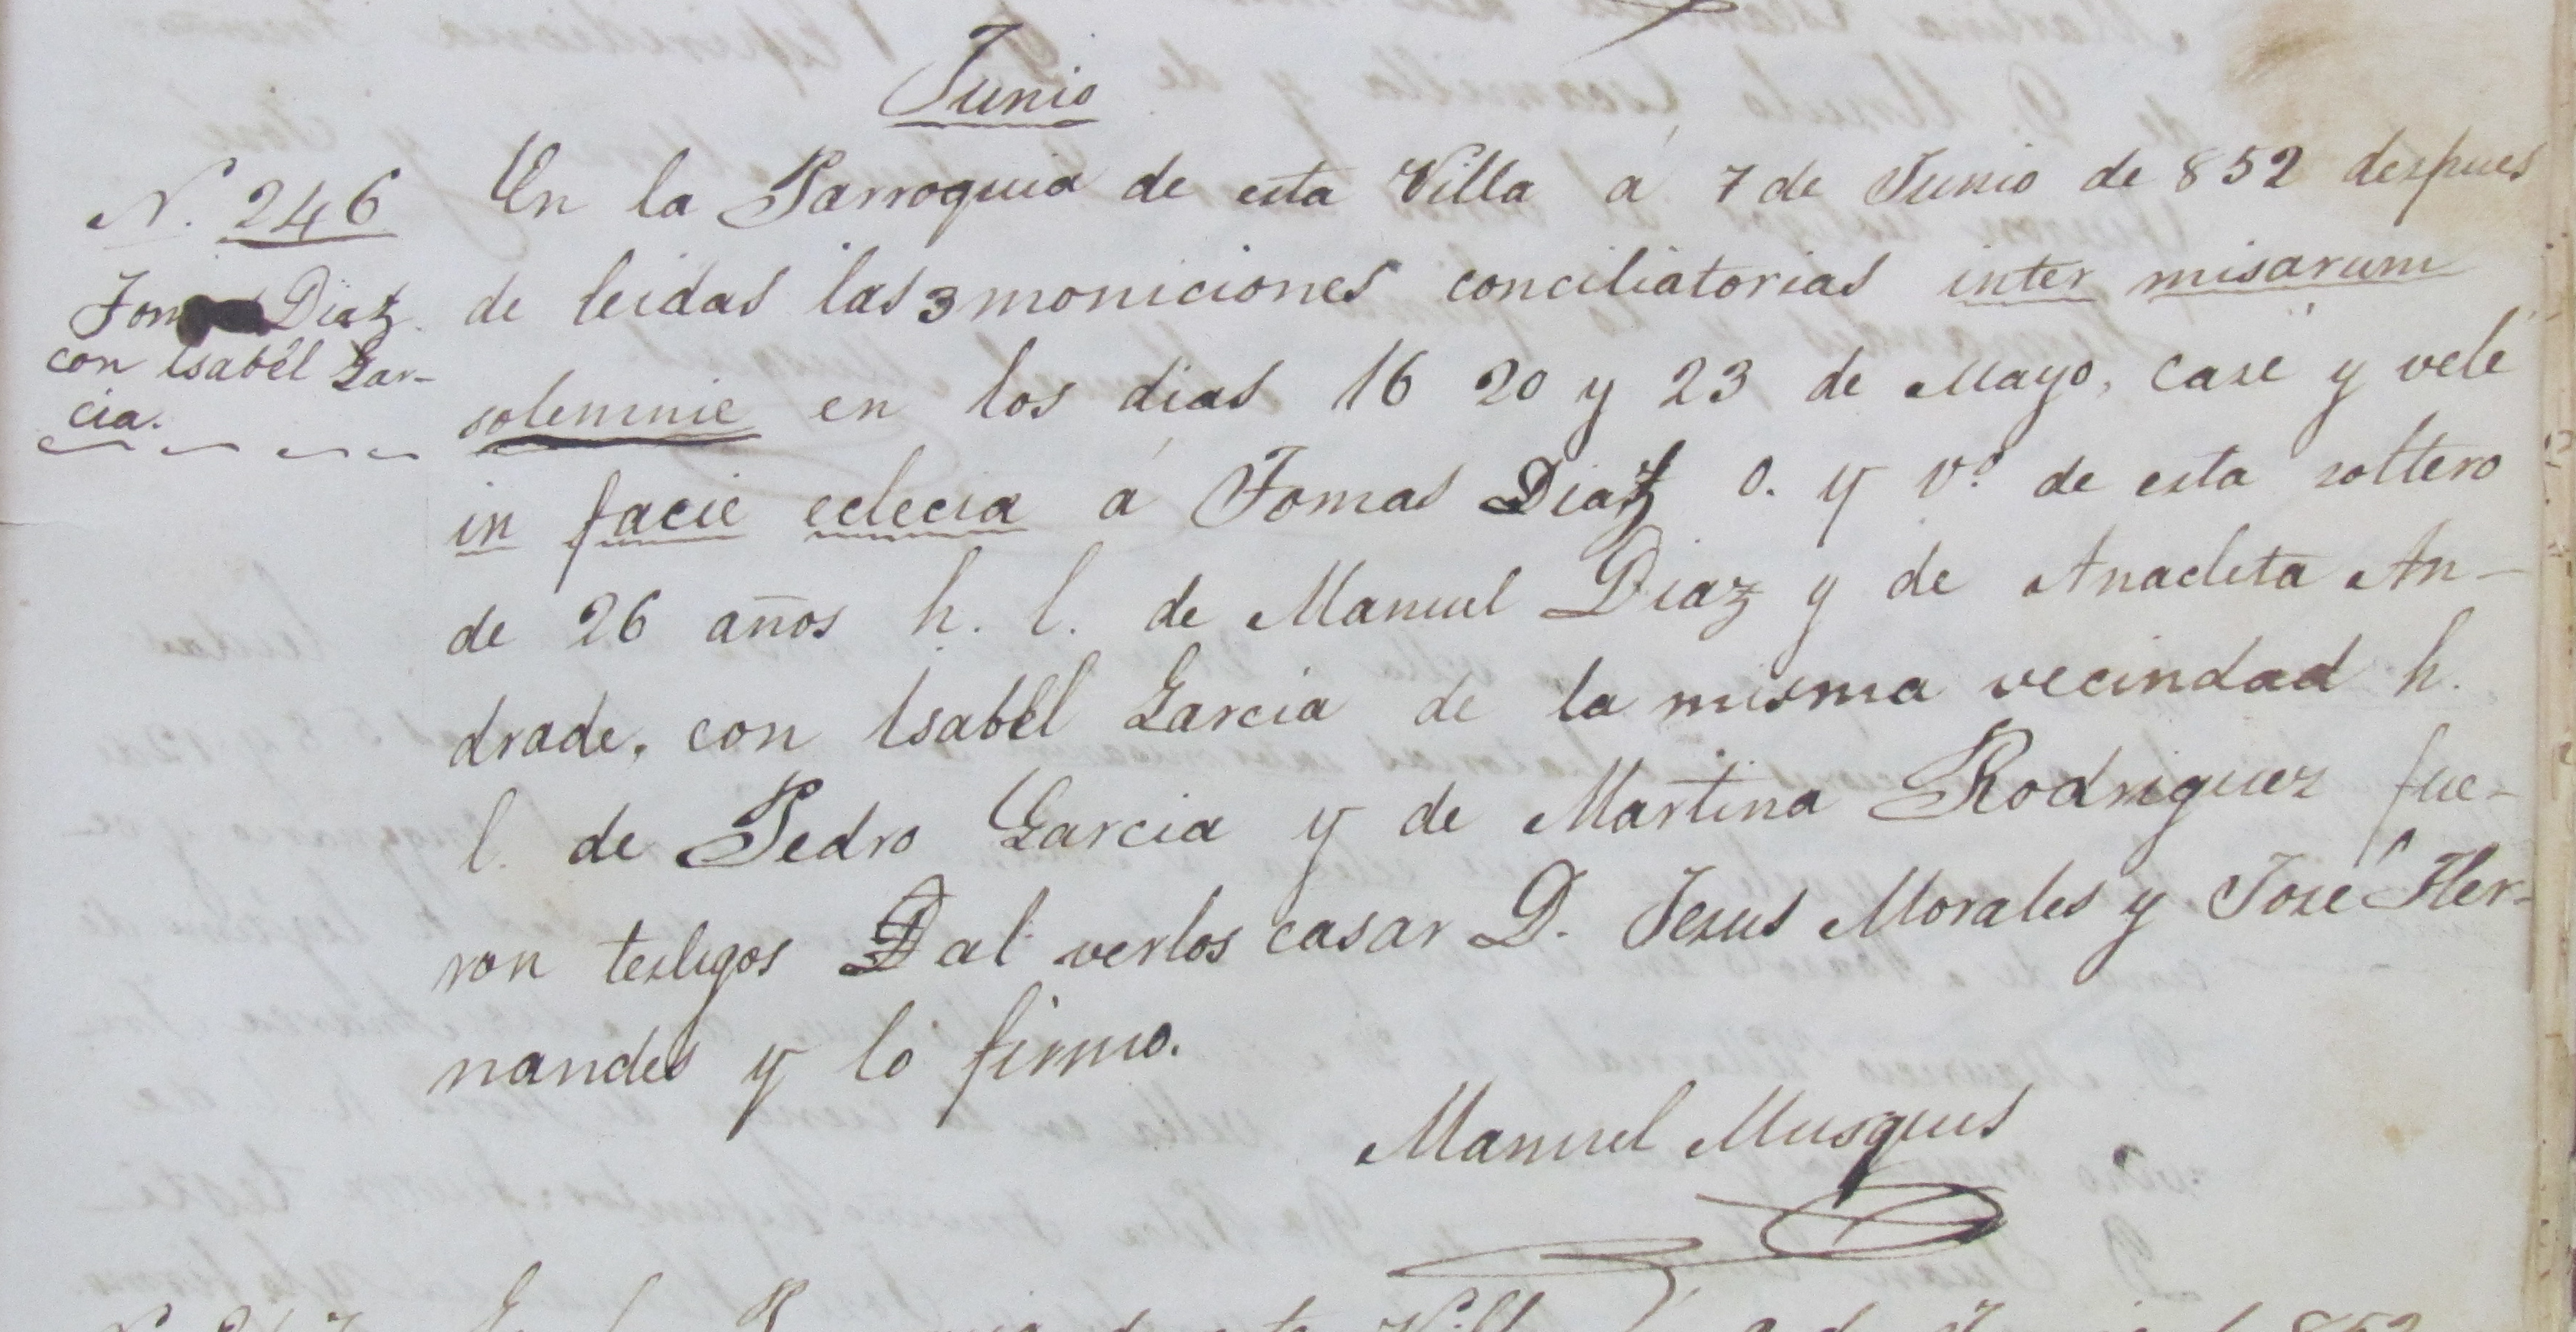 Junio
N. 246
Tomas Diaz
con Isabél Gar-
cia.
En la Parroquia de esta Villa á 7 de Junio de 852 despues
de leidas las 3 moniciones conciliatorias inter misarum
solemnie en los dias 16 20 y 23 de Mayo, casé y velé
in facie eclecia á Tomas Diaz o. y vº de esta soltero
de 26 años h. l. de Manuel Diaz y de Anacleta An-
drade, con Isabél Garcia de la misma vecindad h.
l. de Pedro Garcia y de Martina Rodriguez fue-
ron testigos D al verlos casar D. Jesus Morales y José Her-
nandes y lo firmo.
Manuel Musques